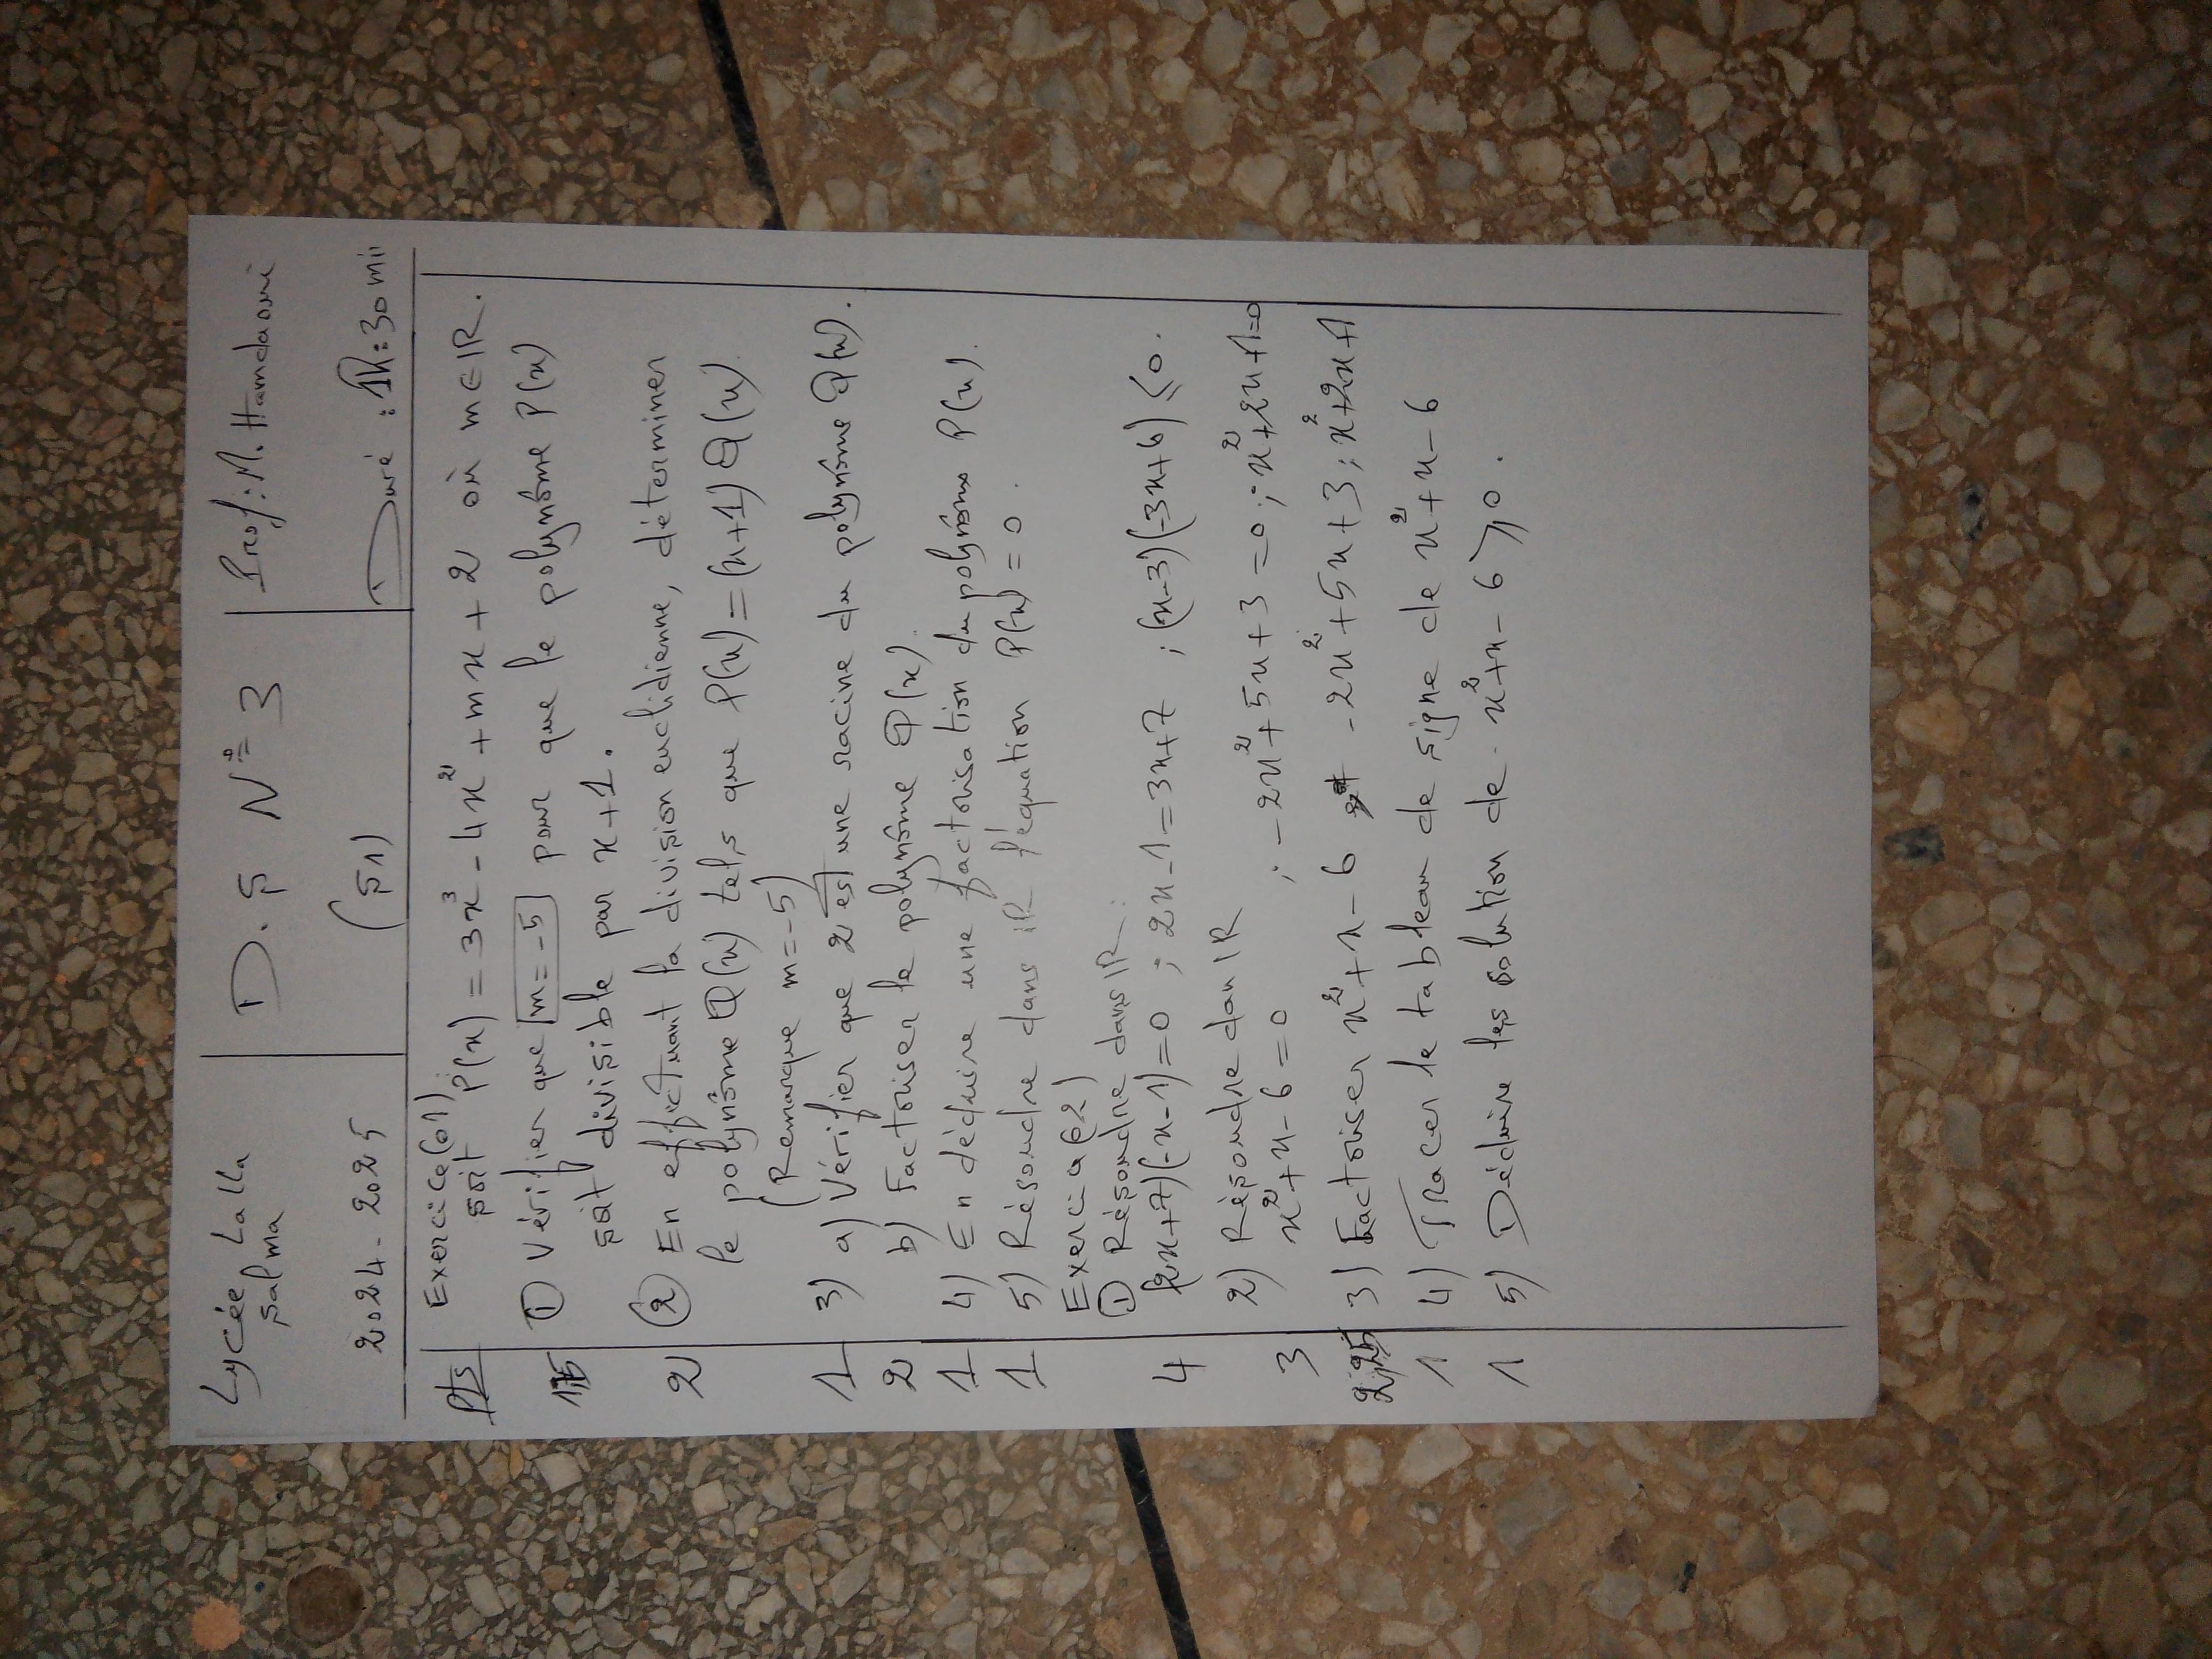 Lycée Lalla
Salma
2024-2025
D.S N° 3
(S1)
Prof: M. Hamdaoui
Duré : 1h:30 min
Pts
Exercice(01):
soit P(x) = 3x³ - 4x² + mx + 2 où m∈IR.
1,75 ① Vérifier que m=-5 pour que le polynôme P(x)
soit divisible par x+1.
2 ② En effectuant la division euclidienne, déterminer
le polynôme Q(x) tels que P(x)=(x+1)Q(x).
(Remarque m=-5)
1 3) a) Vérifier que 2 est une racine du polynôme Q(x).
2 b) Factoriser le polynôme Q(x).
1 4) En déduire une factorisation du polynôme P(x).
1 5) Résoudre dans IR l'équation P(x) = 0.
Exercice(02)
① Résoudre dans IR:
4 (2x+7)(-x-1)=0 ; 2x-1=3x+7 ; (x-3)(-3x+6)≤0.
2) Résoudre dan IR
3 x²+x-6=0 ; -2x²+5x+3=0 ; x²+2x+1=0
2,25 3) Factoriser x²+x-6 et -2x²+5x+3 ; x²+2x+1
1 4) Tracer le tableau de signe de x²+x-6
1 5) Déduire les solution de x²+x-6≥0.